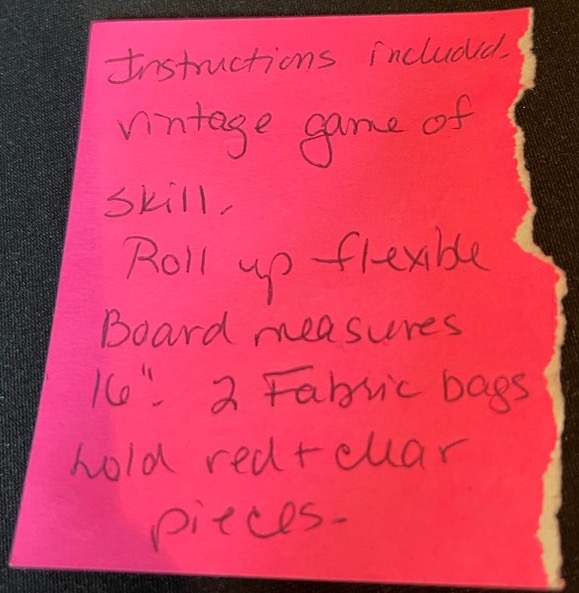 Instructions included.
vintage game of
skill.
Roll up flexible
Board measures
16". 2 Fabric bags
hold red + clear
pieces.